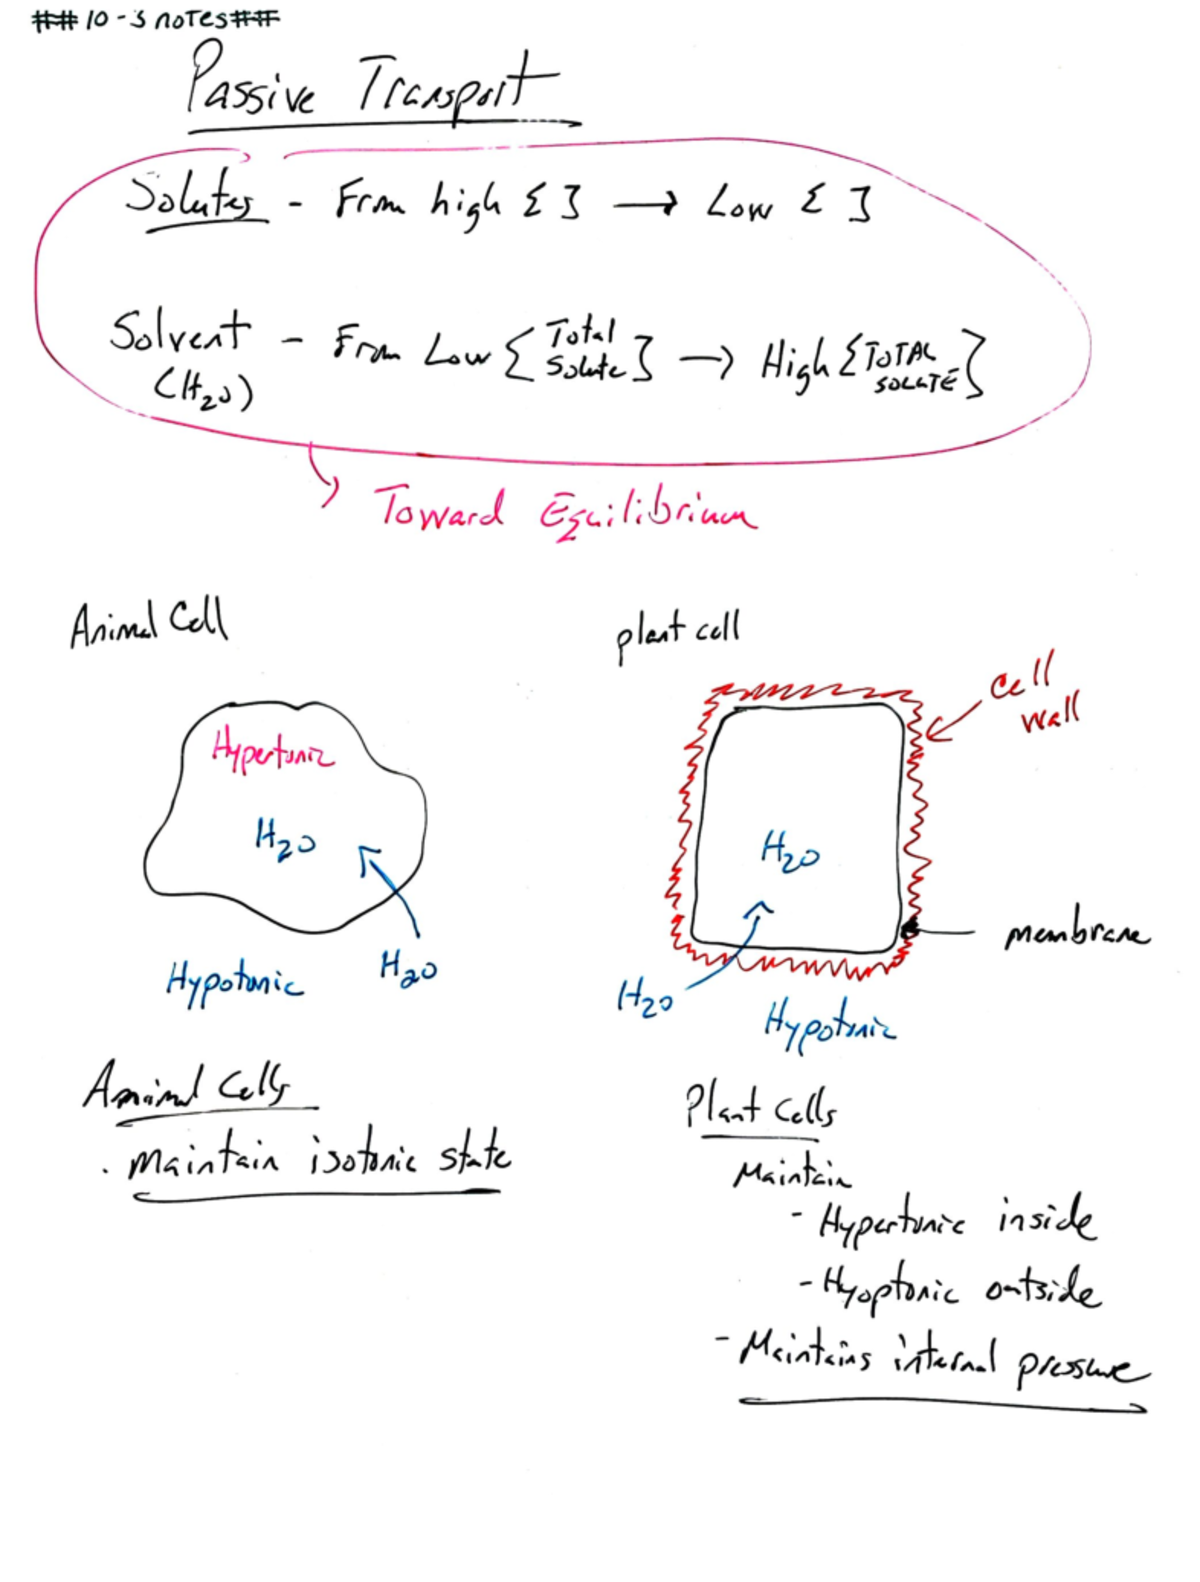 ##10-3 notes##
Passive Transport
Solutes - From high [ ] → Low [ ]
Solvent - From Low [Total Solute] → High [TOTAL SOLUTE]
(H₂O)
Toward Equilibrium
Animal Cell
plant cell
cell
wall
Hypertonic
H₂O
H₂O
membrane
Hypotonic
H₂O
H₂O
Hypotonic
Animal Cells
. Maintain isotonic state
Plant Cells
Maintain
- Hypertonic inside
- Hyoptonic outside
- Maintains internal pressure